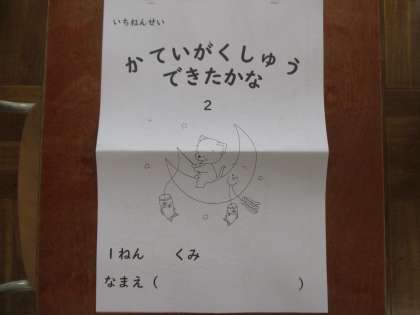 いちねんせい
かていがくしゅう
できたかな
2
1ねん　くみ
なまえ（　　　　　　　）